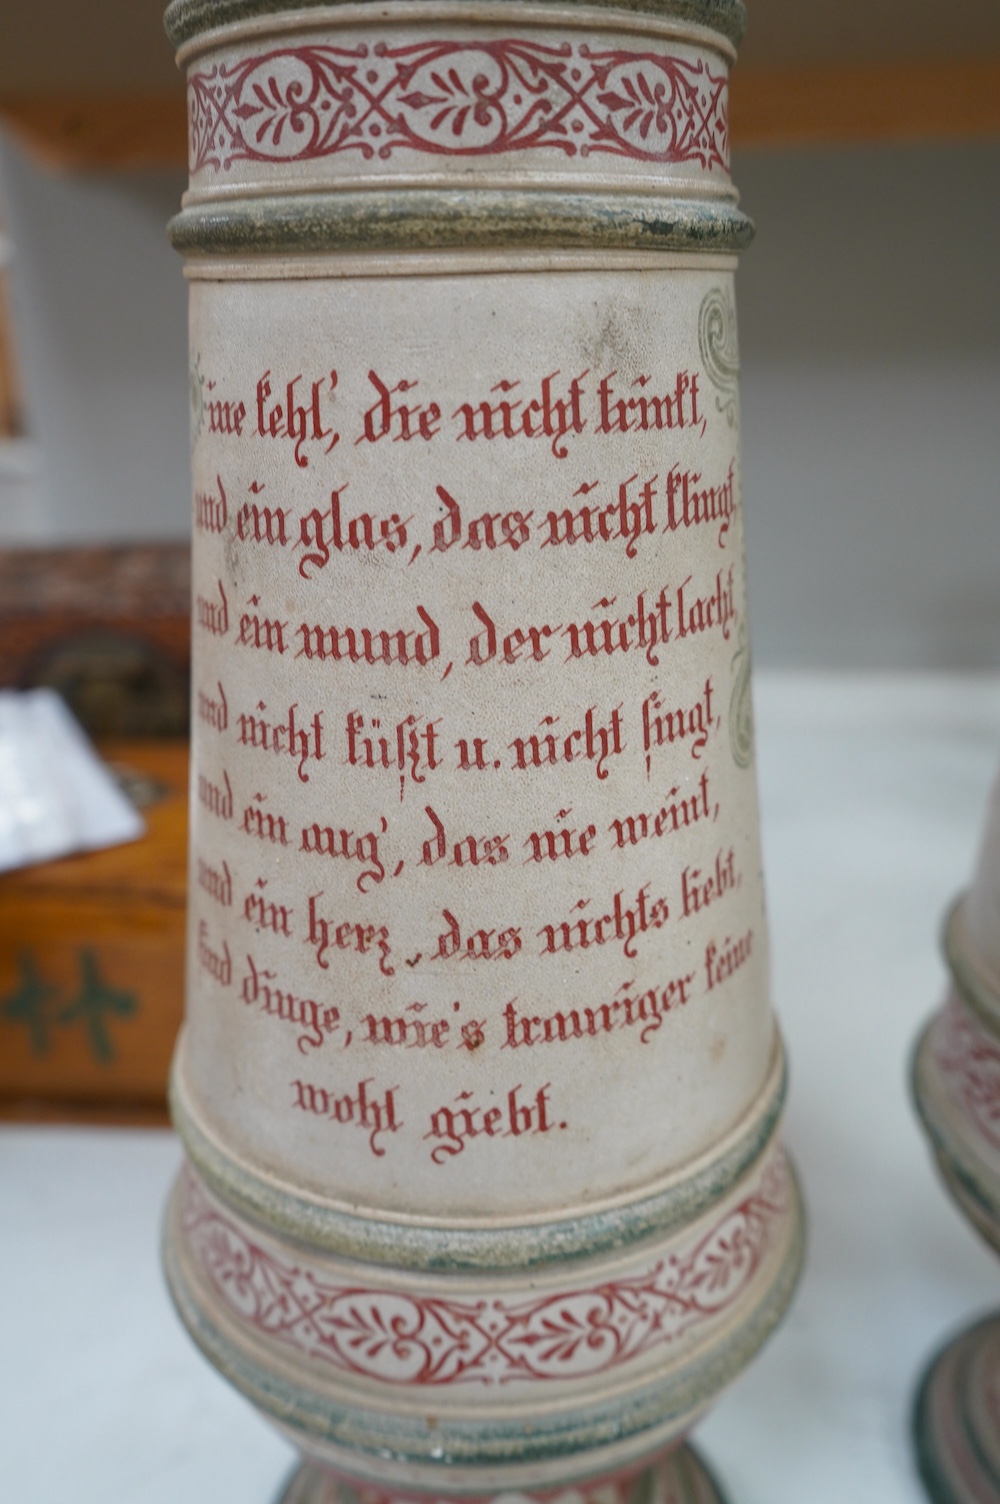 Eine kehl', die nicht trinkt,
und ein glas, das nicht klingt,
und ein mund, der nicht lacht,
und nicht küßt u. nicht singt,
und ein aug', das nie weint,
und ein herz, das nichts liebt,
sind dinge, wie's trauriger keine
wohl giebt.